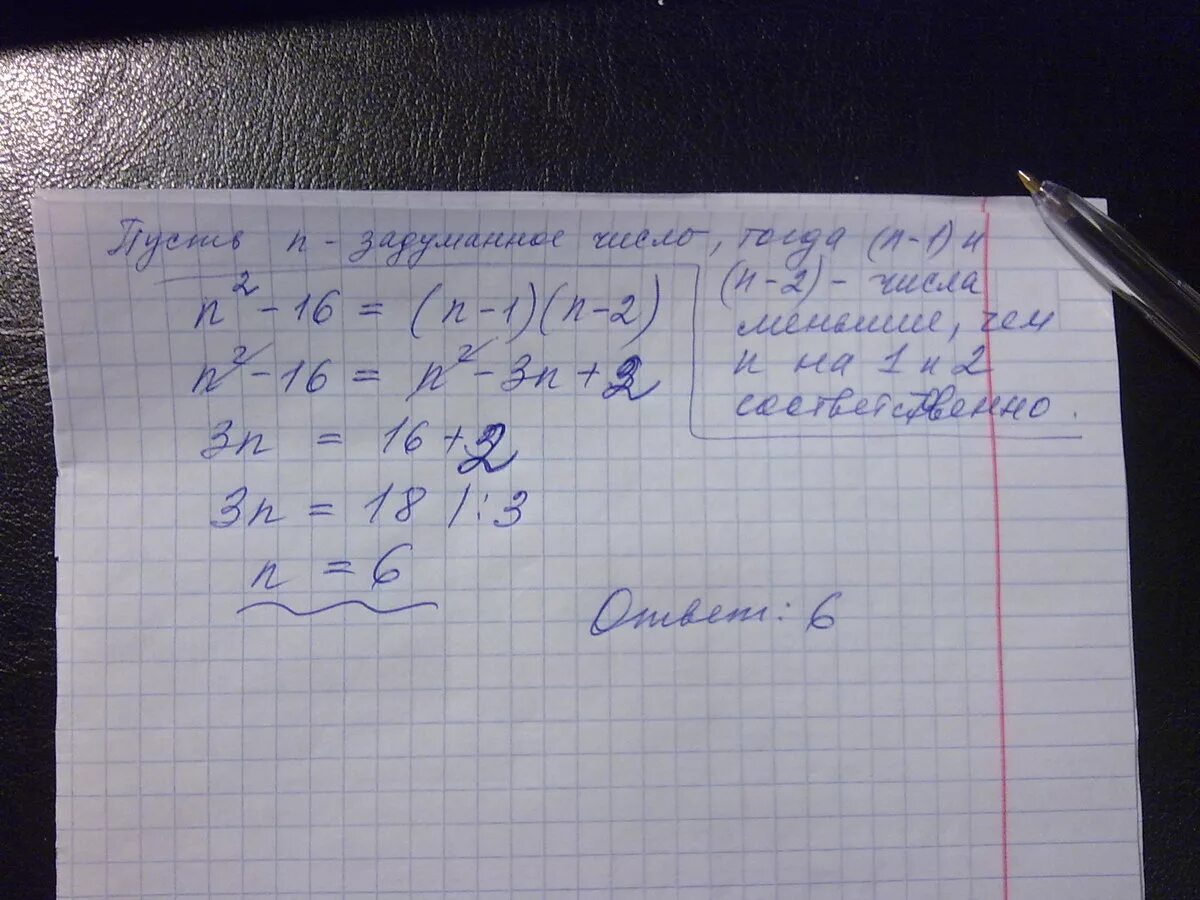 Пусть n - задуманное число, тогда (n-1) и
(n-2) - числа
меньшие, чем
n на 1 и 2
соответственно.
n² - 16 = (n-1)(n-2)
n² - 16 = n² - 3n + 2
3n = 16 + 2
3n = 18 /:3
n = 6
Ответ: 6